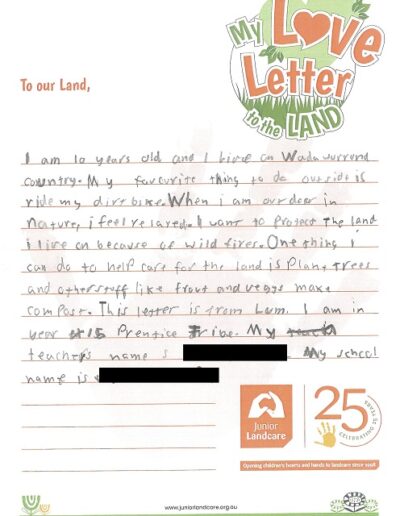 My Love
Letter
to the LAND
To our Land,
I am 10 years old and I live on Wadawurrond
country. My favourite thing to do outside is
ride my dirt bike. When i am outdoor in
nature, i feel relaxed. I want to Protect the land
i live on because of wild fires. One thing i
can do to help care for the land is Plant trees
and other stuff like frout and vegys make
compost. This letter is from Lum. I am in
year 5 Prentice Tribe. My
teacher's name s My school
name is
Junior
Landcare
25 YEARS
CELEBRATING
Opening children's hearts and hands to landcare since 1998
www.juniorlandcare.org.au